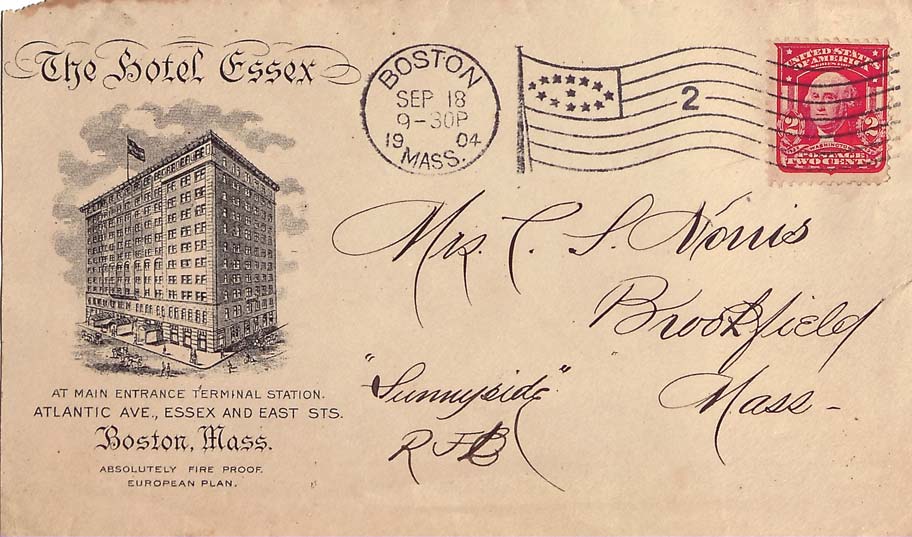 The Hotel Essex
AT MAIN ENTRANCE TERMINAL STATION.
ATLANTIC AVE., ESSEX AND EAST STS.
Boston, Mass.
ABSOLUTELY FIRE PROOF.
EUROPEAN PLAN.
BOSTON
SEP 18
9-30P
1904
MASS.
2
UNITED STATES
OF AMERICA
2 2
WASHINGTON
POSTAGE
TWO CENTS
Mrs. C. S. Norris
Brookfield
Mass -
"Sunnyside".